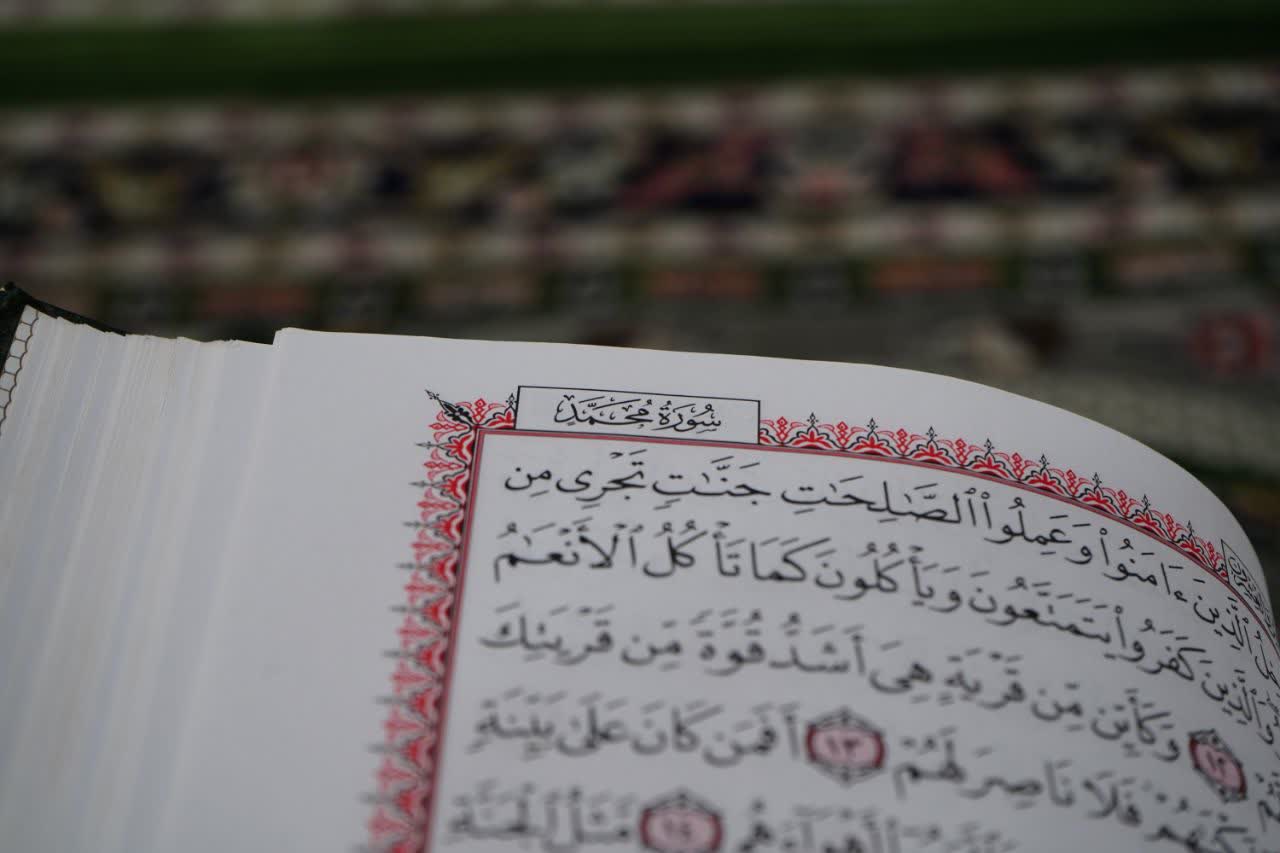 سُورَةُ مُحَمَّدٍ
ٱلَّذِينَ ءَامَنُوا۟ وَعَمِلُوا۟ ٱلصَّٰلِحَٰتِ جَنَّٰتٍ تَجْرِى مِن
وَٱلَّذِينَ كَفَرُوا۟ يَتَمَتَّعُونَ وَيَأْكُلُونَ كَمَا تَأْكُلُ ٱلْأَنْعَٰمُ
١٢ وَكَأَيِّن مِّن قَرْيَةٍ هِىَ أَشَدُّ قُوَّةً مِّن قَرْيَتِكَ
فَلَا نَاصِرَ لَهُمْ ١٣ أَفَمَن كَانَ عَلَىٰ بَيِّنَةٍ
أَهْوَآءَهُم ١٤ مَّثَلُ ٱلْجَنَّةِ